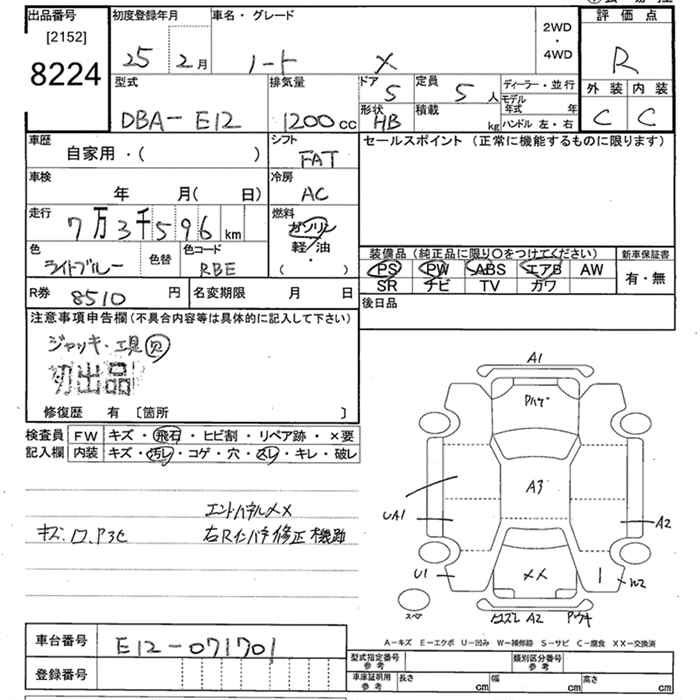 出品番号
[2152]
8224
初度登録年月
25 2月
車名・グレード
ノート X
2WD
・
4WD
評価点
R
外装 内装
C C
型式
DBA-E12
排気量
1200cc
ドア
5
定員
5人
形状
HB
積載
kg
ディーラー・並行
モデル年式 年
ハンドル 左・右
車歴
自家用・( )
シフト
FAT
セールスポイント (正常に機能するものに限ります)
車検
年 月( 日)
冷房
AC
走行
7万3千596km
燃料
ガソリン
軽/油
・
( )
色
ライトブルー
色替
色コード
RBE
装備品 (純正品に限り○をつけてください)
PS PW ABS エアB AW
SR ナビ TV カワ
新車保証書
有・無
R券 8510円
名変期限 月 日
後日品
注意事項申告欄(不具合内容等は具体的に記入して下さい)
ジャッキ・工具欠
初出品
修復歴 有 [箇所 ]
検査員記入欄
FW キズ・飛石・ヒビ割・リペア跡・×要
内装 キズ・汚レ・コゲ・穴・スレ・キレ・破レ
エンドパネルXX
右Rインパネ修正機跡
A1
A3
UA1
A2
U1
XX
スペア
A2
車台番号
E12-071701
登録番号
A-キズ E-エクボ U-凹み W-補修跡 S-サビ C-腐食 XX-交換済
型式指定番号
参考
類別区分番号
参考
車庫証明用
参考
長さ cm
幅 cm
高さ cm